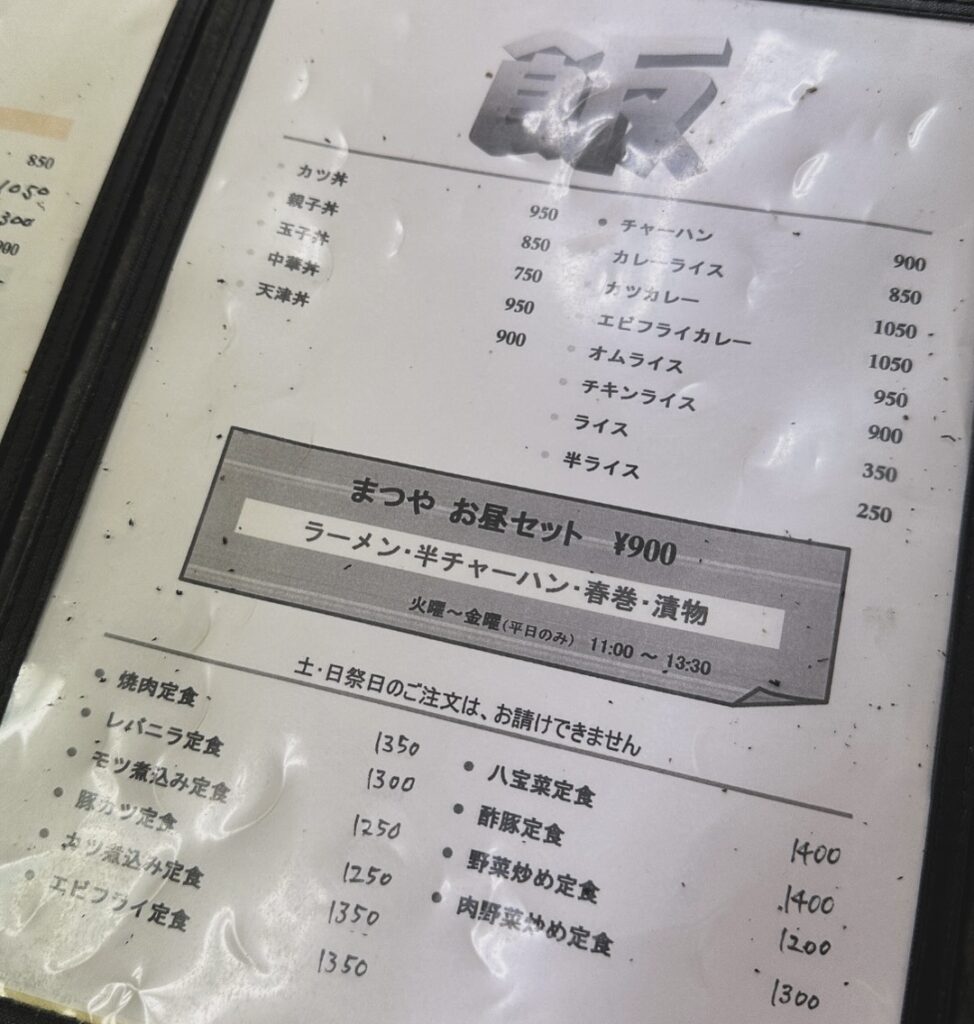 850
1050
300
飯
カツ丼 950
親子丼 850
玉子丼 750
中華丼 950
天津丼 900
チャーハン 900
カレーライス 850
カツカレー 1050
エビフライカレー 1050
オムライス 950
チキンライス 900
ライス 350
半ライス 250
まつや お昼セット ¥900
ラーメン・半チャーハン・春巻・漬物
火曜～金曜(平日のみ) 11:00 ～ 13:30
土・日祭日のご注文は、お請けできません
焼肉定食 1350
レバニラ定食 1300
モツ煮込み定食 1250
豚カツ定食 1250
カツ煮込み定食 1350
エビフライ定食 1350
八宝菜定食 1400
酢豚定食 1400
野菜炒め定食 1200
肉野菜炒め定食 1300